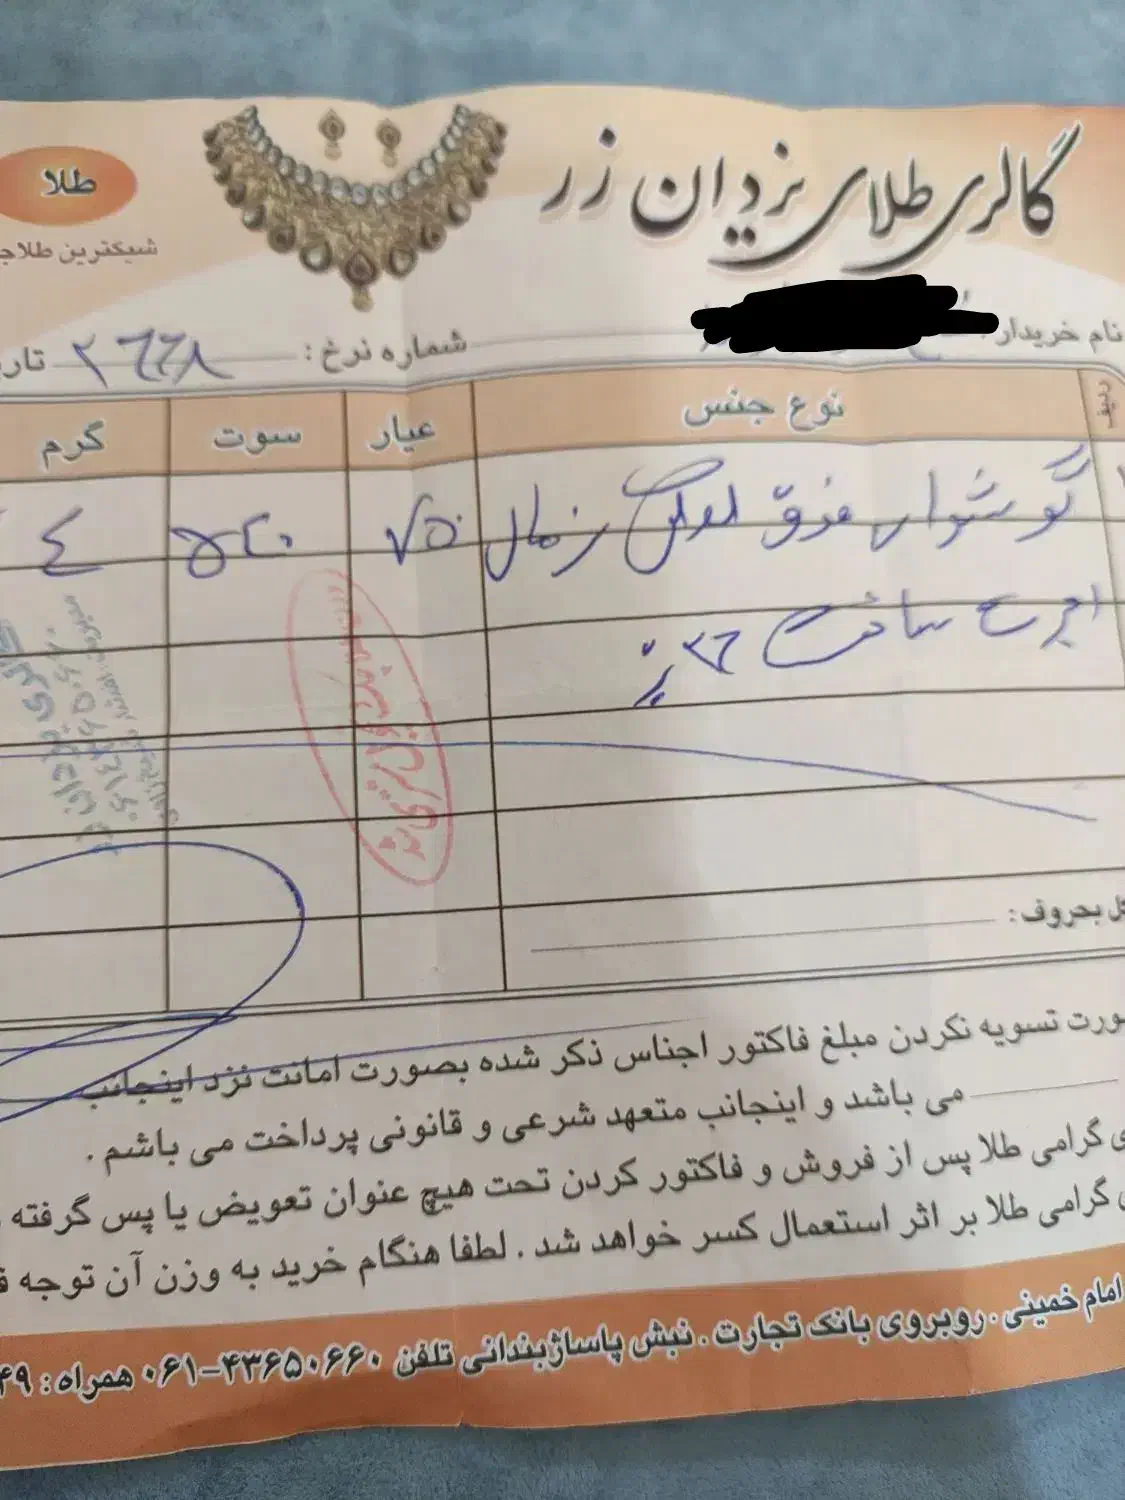 گالری طلای یزدان زر
طلا
شیکترین طلاجـ
نام خریدار:
شماره نرخ: ۲۶۶۸
تار
ردیف
نوع جنس
عیار
سوت
گرم
گوشوار
۷۵۰
۵۲۰
۴
اجرت ساخت
گالری یزدان زر
کل بحروف:
صورت تسویه نکردن مبلغ فاکتور اجناس ذکر شده بصورت امانت نزد اینجانب
می باشد و اینجانب متعهد شرعی و قانونی پرداخت می باشم .
ی گرامی طلا پس از فروش و فاکتور کردن تحت هیچ عنوان تعویض یا پس گرفته
ی گرامی طلا بر اثر استعمال کسر خواهد شد . لطفا هنگام خرید به وزن آن توجه
امام خمینی . روبروی بانک تجارت . نبش پاساژبندانی تلفن ۴۳۶۵۰۶۶۰-۰۶۱ همراه : ۴۹